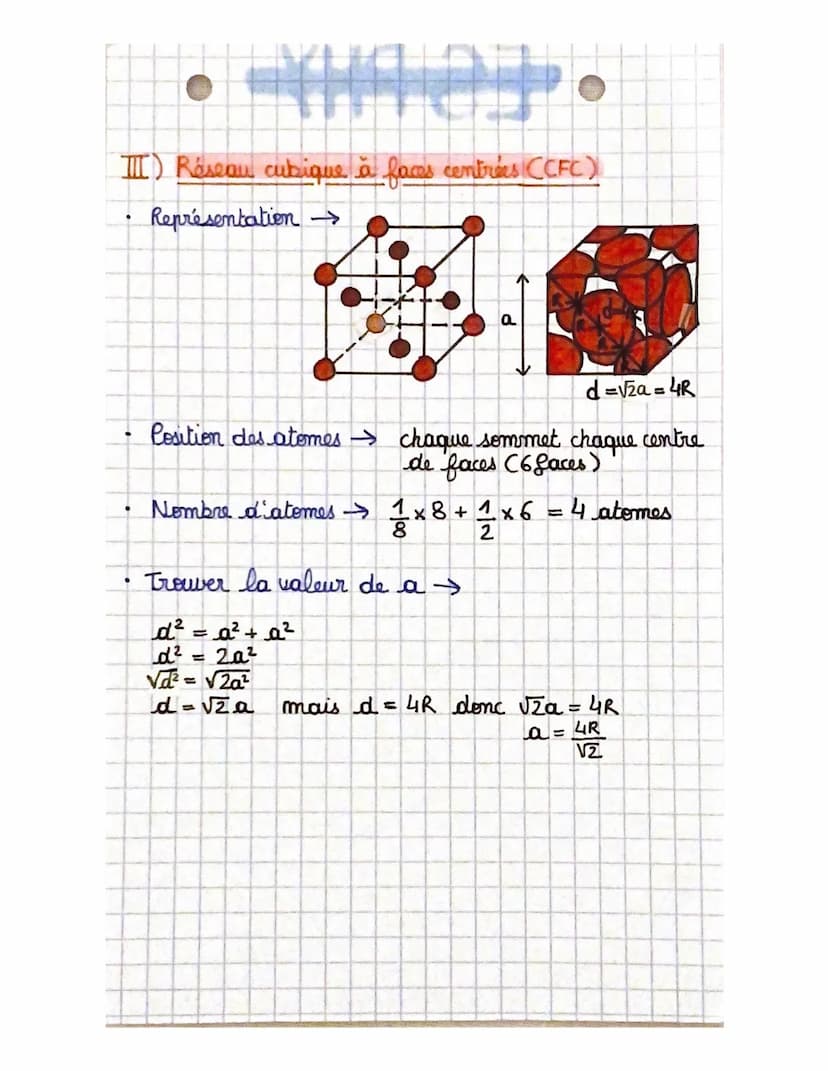 III) Réseau cubique à faces centrées (CFC)
• Représentation →
a
d = √2a = 4R
• Position des atomes → chaque sommet chaque centre
de faces (6 faces)
• Nombre d'atomes → 1/8 x 8 + 1/2 x 6 = 4 atomes
• Trouver la valeur de a →
d² = a² + a²
d² = 2a²
√d² = √2a²
d = √2 a mais d = 4R donc √2a = 4R
a = 4R/√2